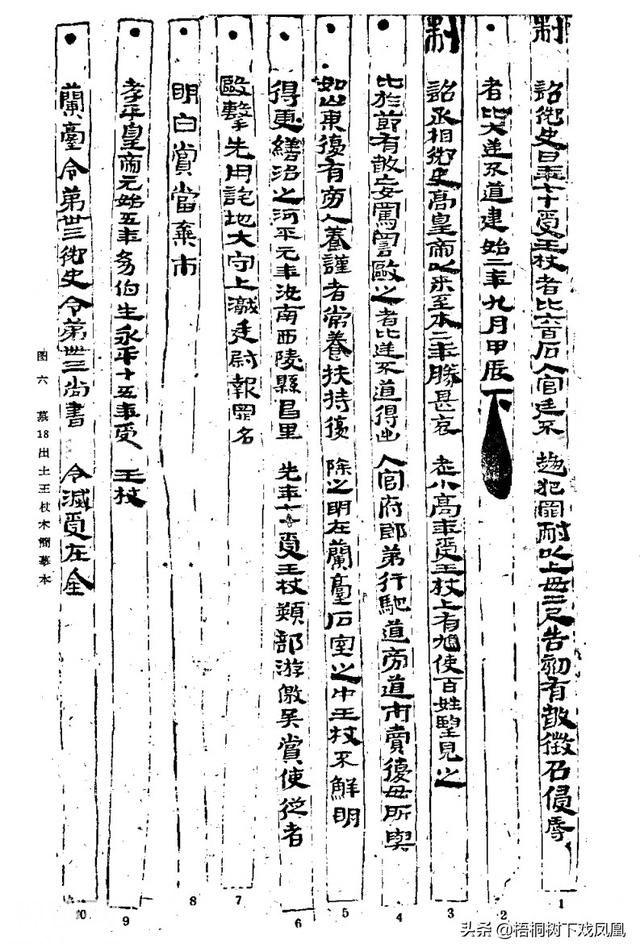 制 詔御史曰年七十受王杖者比六百石入官廷不趨犯罪耐以上毋二尺告劾有敢徵召侵辱
者比大逆不道建始二年九月甲辰下
制 詔丞相御史高皇帝以來至本二年勝甚哀老小高年受王杖上有鳩使百姓望見之
比於節有敢妄罵詈毆之者比逆不道得出入官府郎第行馳道旁道市賣復毋所與
如山東復有旁人養謹者常養扶持復除之明在蘭臺石室之中王杖不鮮明
得更繕治之河平元年汝南西陵縣昌里先年七十受王杖熲部游徼吳賞使從者
毆擊先用詫地大守上讞廷尉報罪名
明白賞當棄市
孝平皇帝元始五年幼伯生永平十五年受王杖
蘭臺令第卅三御史令第卌三尚書令滅受在金
图六 墓18出土王杖木简摹本
1
2
3
4
5
6
7
8
9
10
头条@梧桐树下戏凤凰